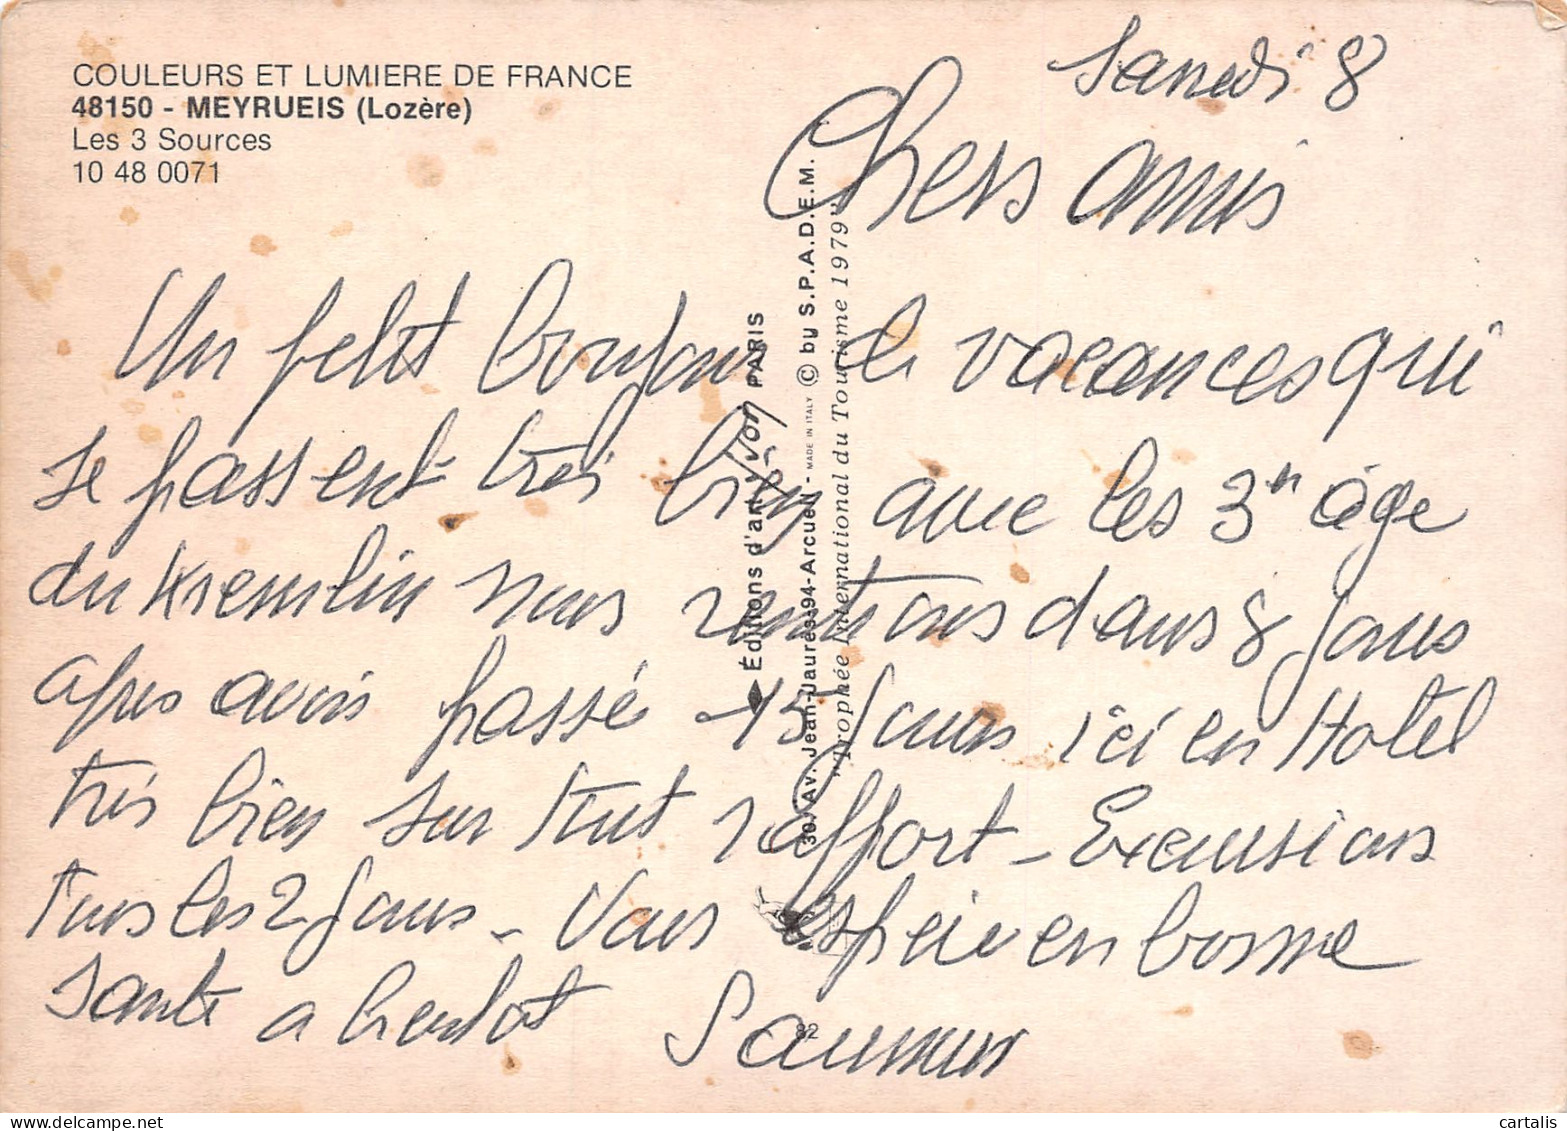 COULEURS ET LUMIERE DE FRANCE
48150 - MEYRUEIS (Lozère)
Les 3 Sources
10 48 0071
Samedi 8
Chers amis
Un petit bonjour de vacances qui
se passent très bien avec les 3en âge
du Kremlin nous rentrons dans 8 jours
apres avoir passé 15 jours ici en Hotel
très bien sur tout rapport - Excursions
tous les 2 jours - Vous espère en bonne
santé a bientot Saumur
Éditions d'art yvon PARIS
30, Av. Jean-Jaurès-94-Arcueil - MADE IN ITALY © by S.P.A.D.E.M.
"Trophée International du Tourisme 1979"
82
www.delcampe.net
cartalis